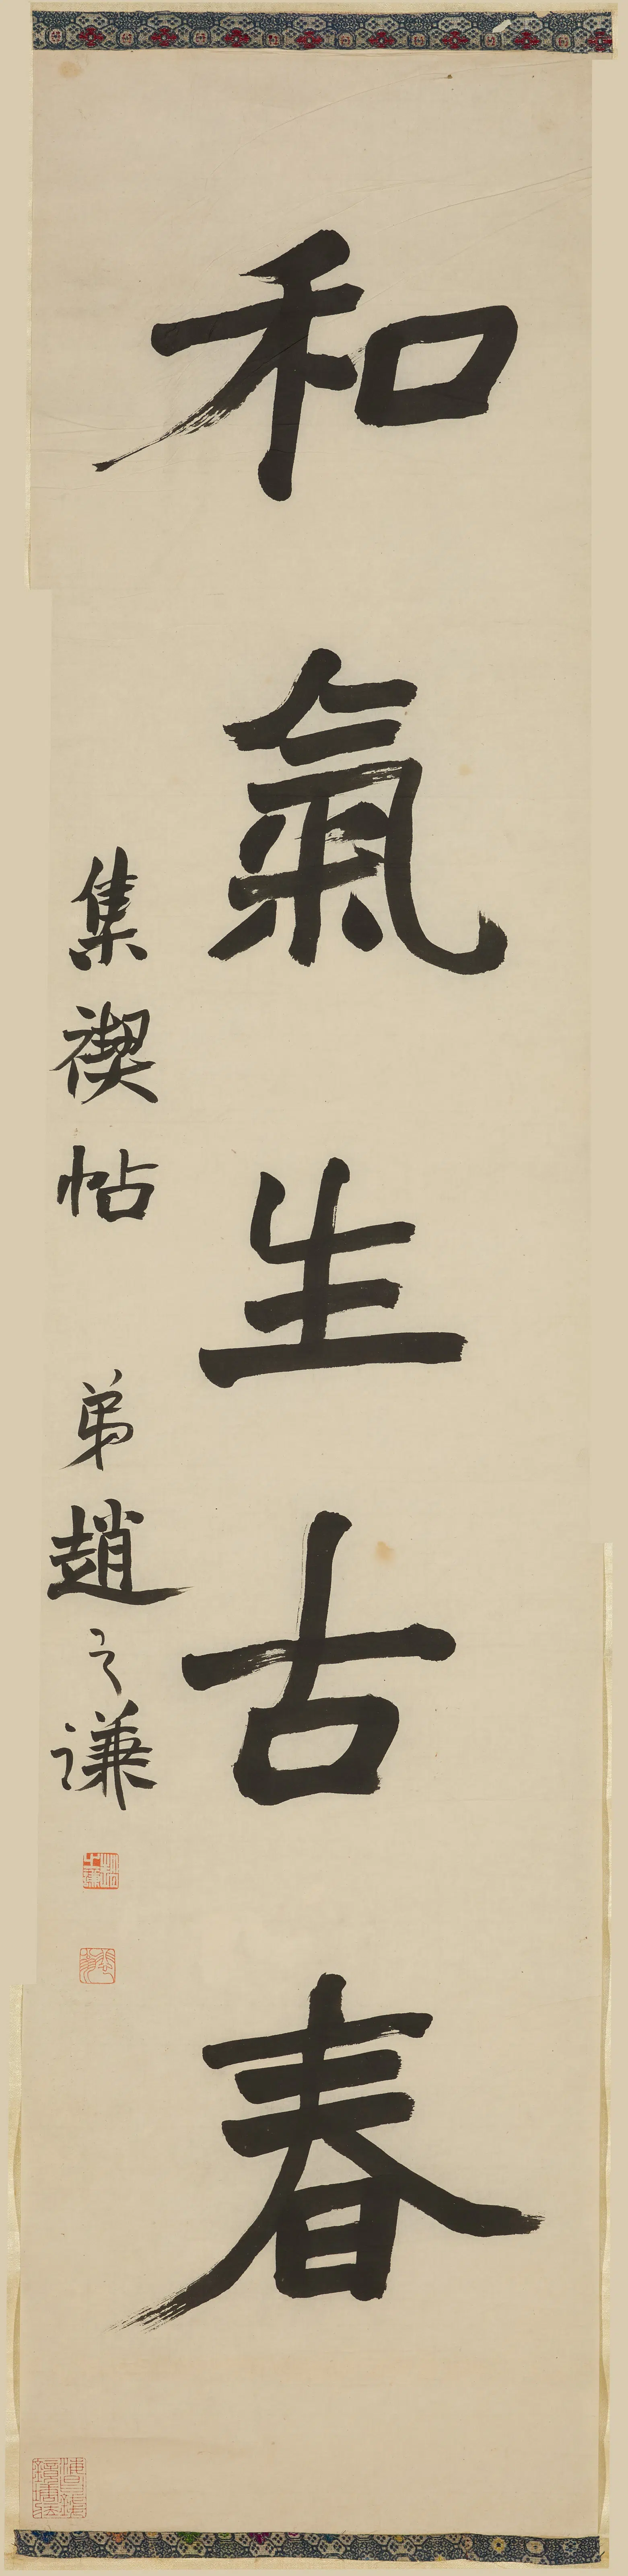 和氣生古春
集禊帖 弟趙之謙